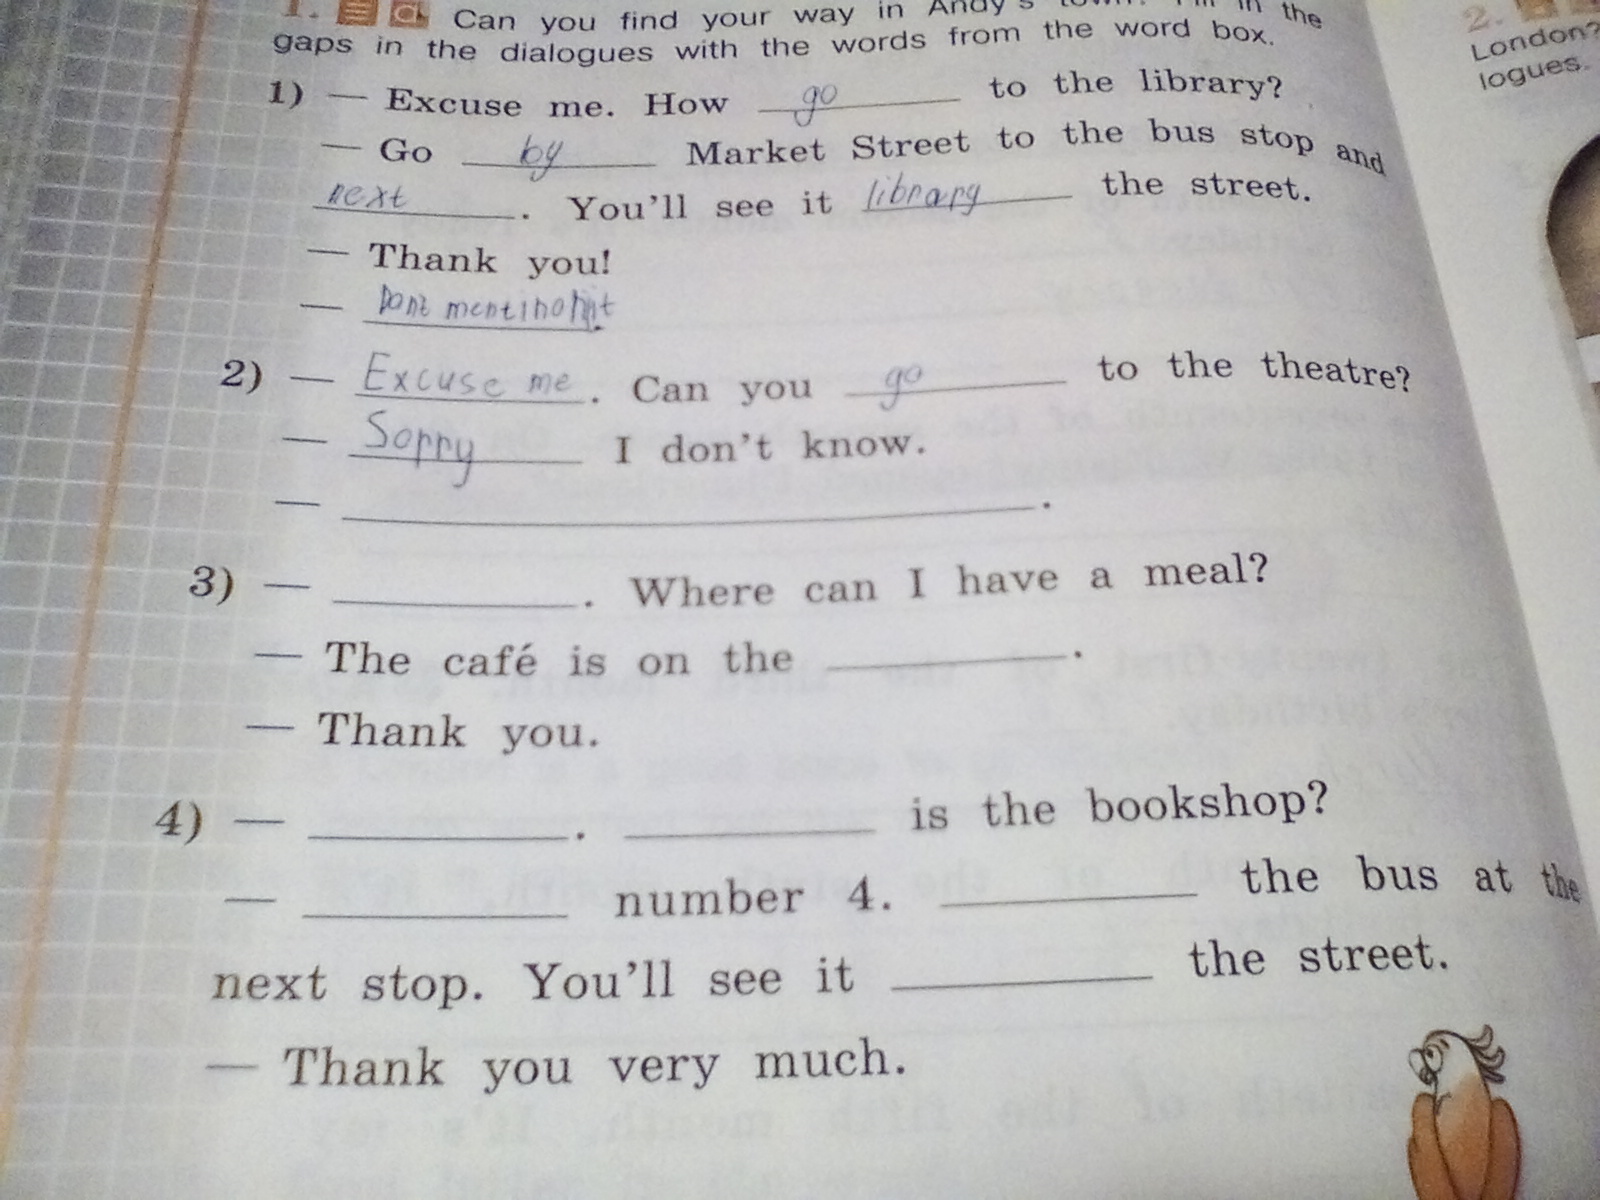 1. Can you find your way in Andy's town? Fill in the
gaps in the dialogues with the words from the word box.
1) — Excuse me. How go to the library?
— Go by Market Street to the bus stop and
next. You'll see it library the street.
— Thank you!
— Dont
2) — Excuse me. Can you go to the theatre?
— Sorry I don't know.
— .
3) — . Where can I have a meal?
— The café is on the .
— Thank you.
4) — . is the bookshop?
— number 4. the bus at the
next stop. You'll see it the street.
— Thank you very much.
2.
London?
logues.